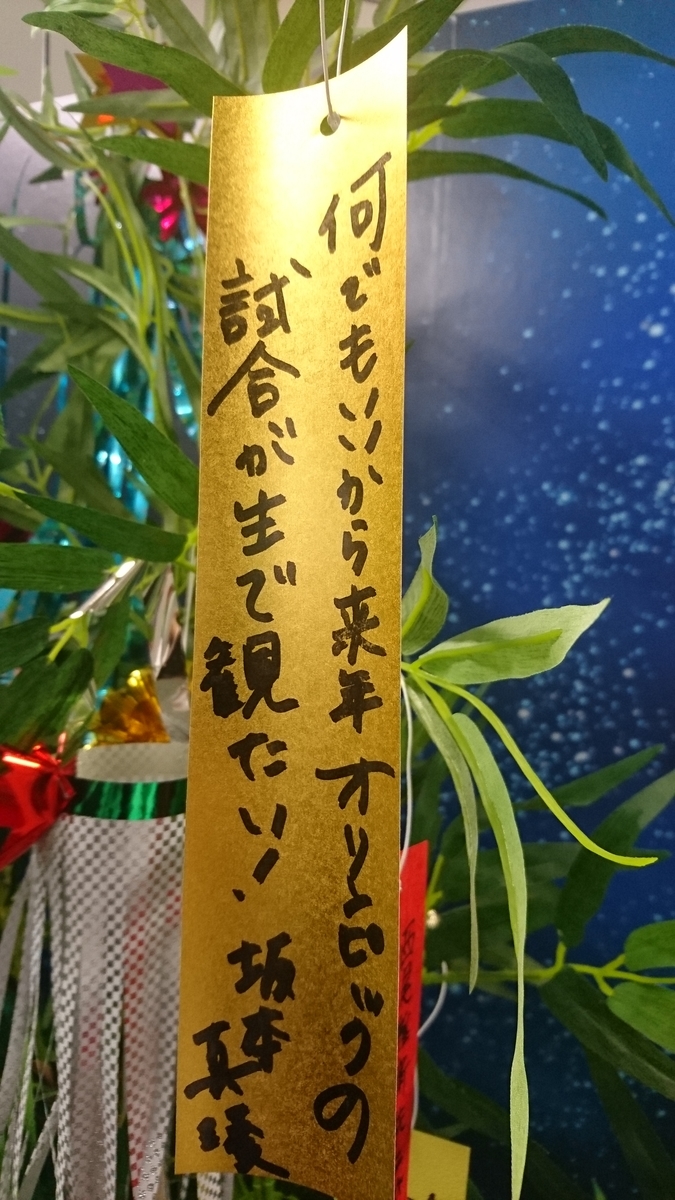 何でもいいから来年オリンピックの
試合が生で観たい！
坂本
真綾